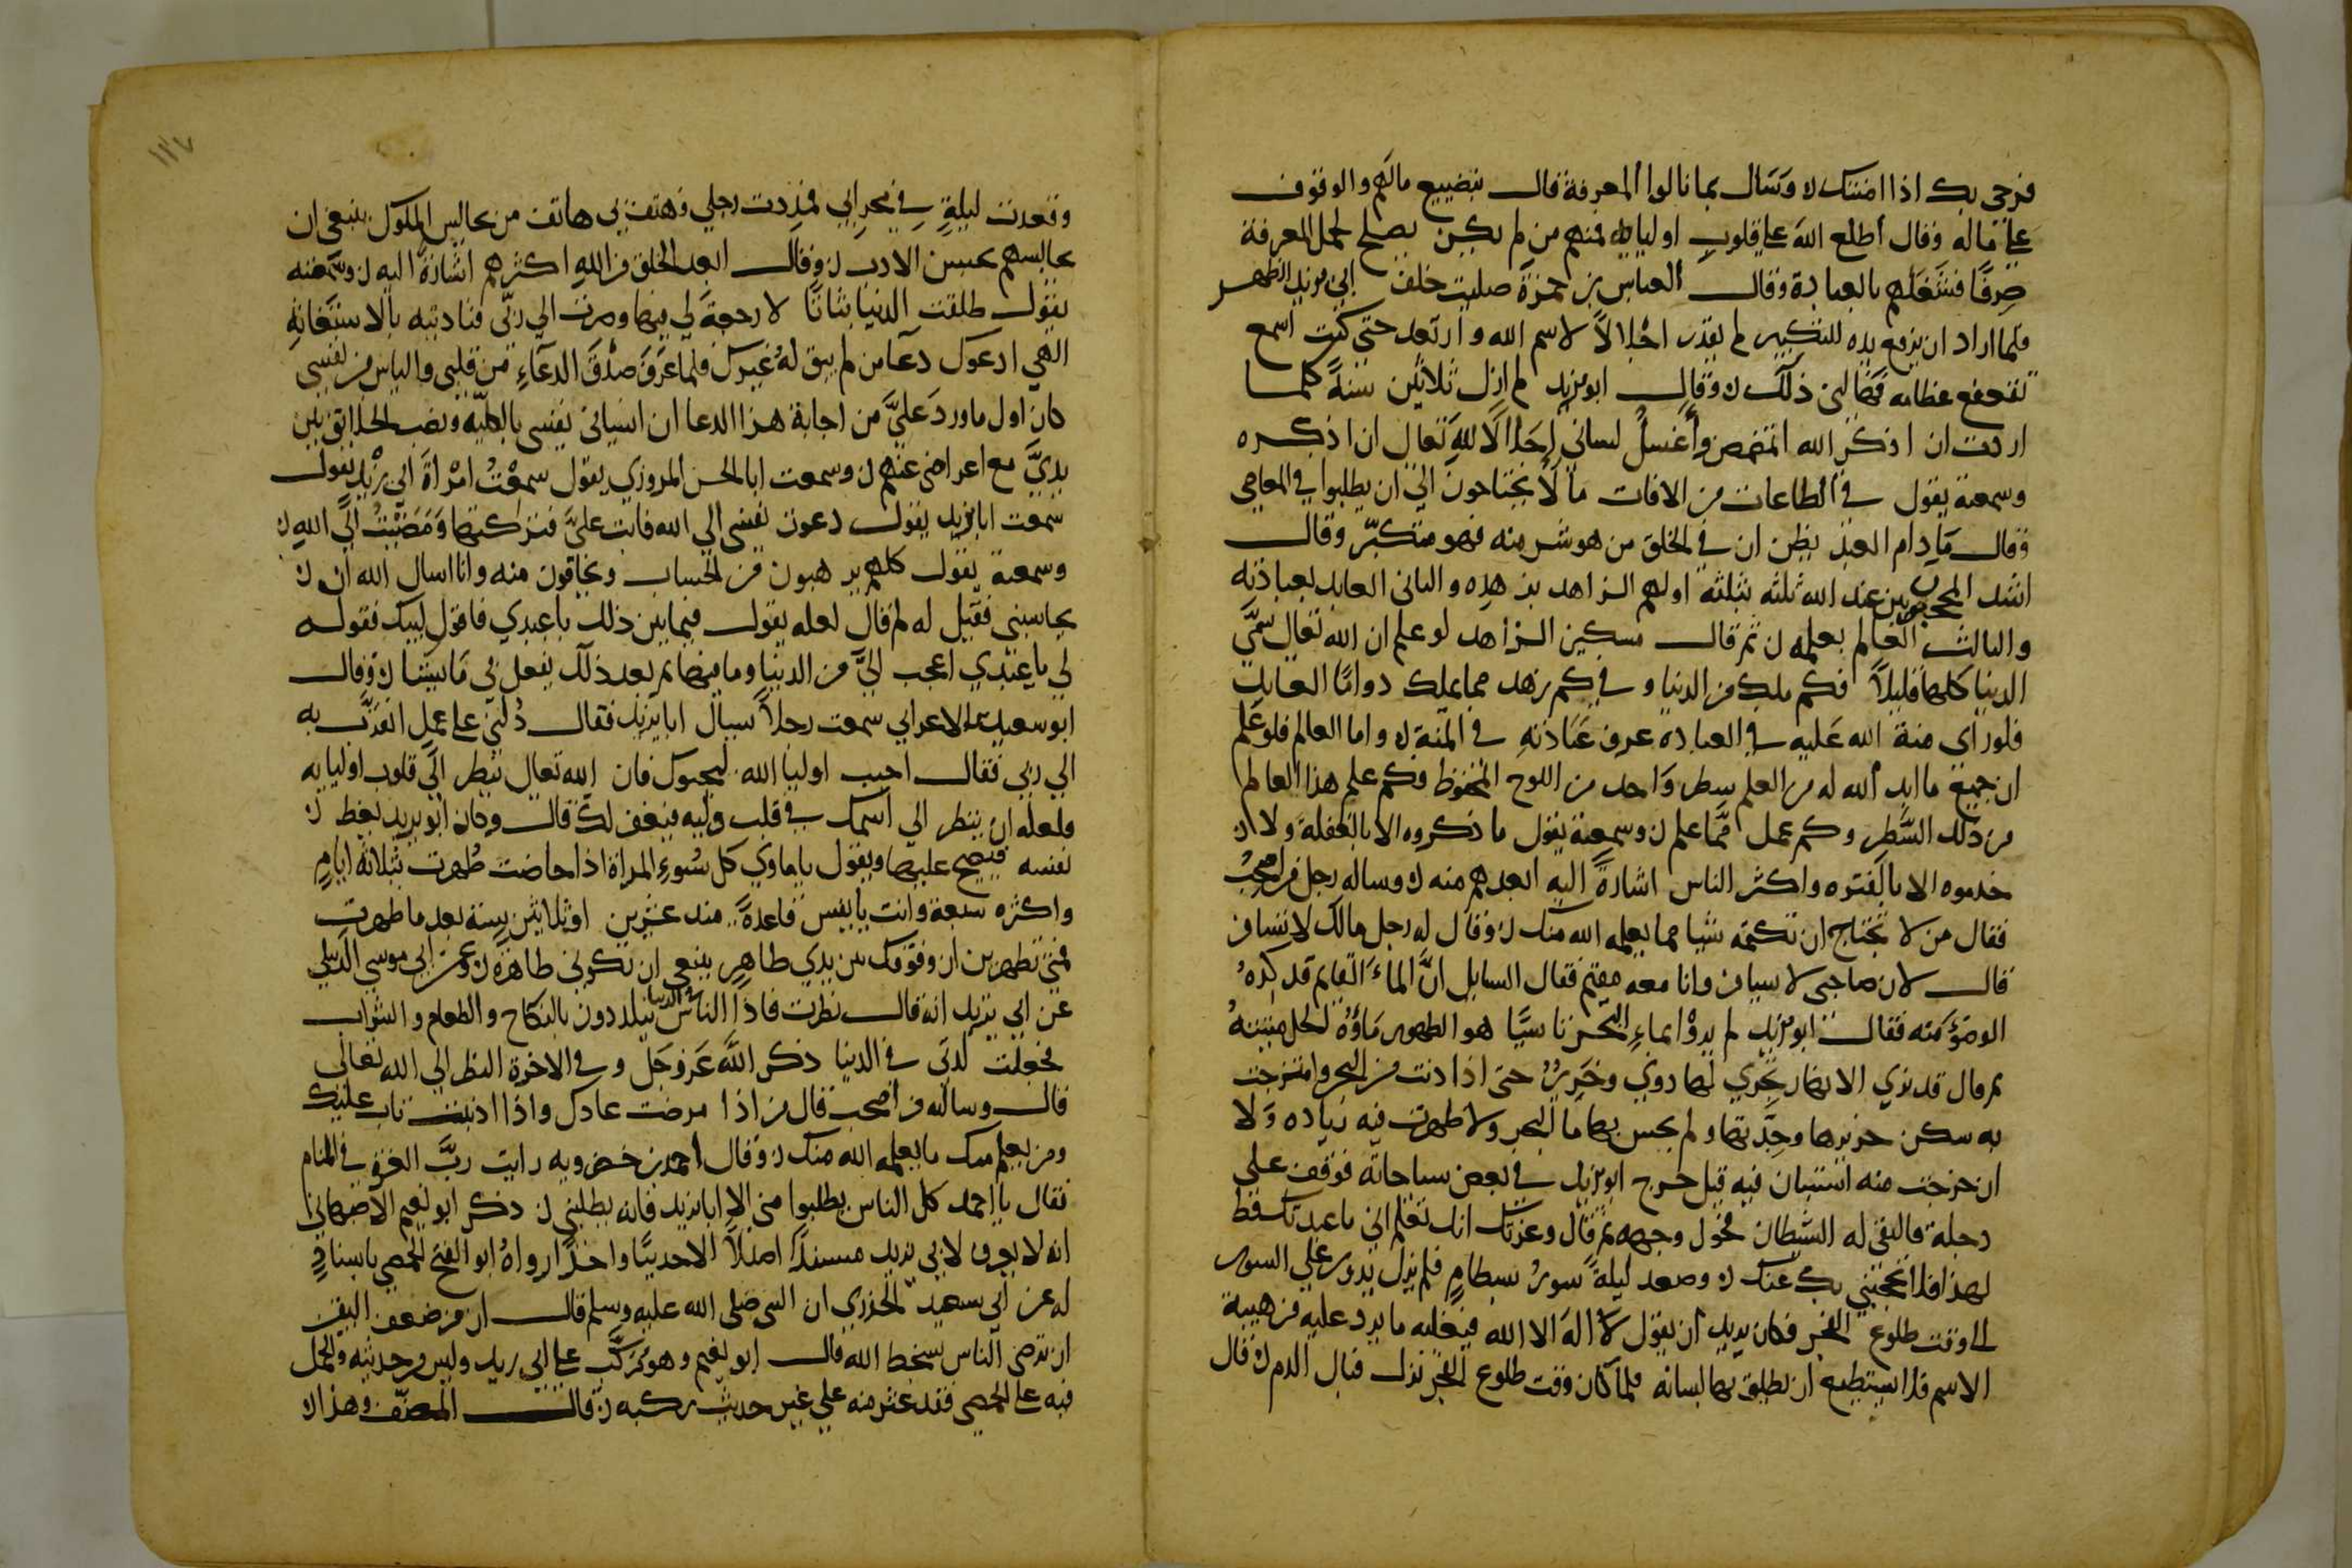 فرحي بك اذا امنتك ٥ وسال بما نالوا المعرفة قال بتضييع مالهم والوقوف
على ماله وقال اطلع الله على قلوب اوليائه فمنهم من لم يكن يصلح لحمل المعرفة
صرفًا فشغلهم بالعبادة وقال العباس بن حمزة صليت خلف ابي يزيد الظهر
فلما اراد ان يرفع يده للتكبير لم يقدر اجلالاً لاسم الله وارتعد حتى كنت اسمع
تقعقع عظامه فهالني ذلك ٥ وقال ابو يزيد لم ازل ثلاثين سنةً كلما
اردت ان اذكر الله اتمضمض وأغسل لساني اجلالا لله تعالى ان اذكره
وسمعته يقول في الطاعات من الافات ما لا يحتاجون الى ان يطلبوا في المعاصي
وقال مادام العبد يظن ان في الخلق من هو شر منه فهو متكبّر وقال
اشد المحجوبين عند الله ثلثه بثلثه اولهم الزاهد بزهده والثاني العابد بعبادته
والثالث العالم بعلمه ٥ ثم قال مسكين الزاهد لو علم ان الله تعالى سمّى
الدنيا كلها قليلاً فكم ملك من الدنيا وفي كم زهد مما يملك واما العابد
فلو راى منة الله عليه في العباده عرف عبادته في المنة ٥ واما العالم فلو علم
ان جميع ما ابدى الله له من العلم سطر واحد من اللوح المحفوظ فكم علم هذا العالم
من ذلك السَّطر وكم عمل ممّا علم ٥ وسمعته يقول ما ذكروه الا بالغفله ولا
خدموه الا بالفتره واكثر الناس اشارةً اليه ابعدهم منه ٥ وساله رجل من اصحبُ
فقال من لا تحتاج ان تكتمه شيا مما يعلمه الله منك ٥ وقال له رجل مالك لا تسافر
قال لان صاحبي لا يسافر وانا معه مقيم فقال السايل انَّ الماءَ القايم قد كره
الوضؤ منه فقال ابو يزيد لم يروْا بماءِ البحر باسًا هو الطهور ماؤهُ الحل ميتتهُ
ثم قال قد ترى الانهار تجري لها دوي وخرير حتى اذا دنت من البحر وامتزجت
به سكن خريرها وحدَّتها ولم يحس بها ما البحر ولا ظهرت فيه زياده ولا
ان خرجت منه استبان فيه قيل خرج ابو يزيد في بعض سياحاته فوقف على
دجلة فالتقى له الشطان فحول وجهه ثم قال وعزتك انك تعلم اني ما عبدتك قط
لهذا فلا تحجبني بك عنك ٥ وصعد ليلةً سورَ بسطام فلم يزل يدور على السور
الى وقت طلوع الفجر فكان يريد ان يقول لا اله الا الله فيغلبه ما يرد عليه من هيبة
الاسم فلا يستطيع ان يطلق بها لسانه فلما كان وقت طلوع الفجر نزل فبال الدم ٥ قال
١٣٧
وقعدت ليلةً في محرابي فمددت رجلي فهتف بي هاتف من يجالس الملوك ينبغي ان
يجالسهم بحسن الادب ٥ وقال ابعد الخلق من الله اكثرهم اشارةً اليه ٥ وسمعته
يقول طلقت الدنيا بتاتًا لا رجعة لي فيها وصرت الى ربّي فناديته بالاستغاثه
الهي ادعوك دعآ من لم يبق له غيرك فلما عرف صدق الدعاءِ من قلبي والياس من نفسي
كان اول ما ورد عليَّ من اجابة هذا الدعا ان انساني نفسي بالكليّه ونصب الخلائق بين
يديَّ مع اعراضي عنهم ٥ وسمعت ابا الحسن المروزي يقول سمعتُ امْراة ابي يزيد تقول
سمعت ابا يزيد يقول دعوت نفسي الى الله فابت عليَّ فتركتها ومضيتُ الى الله ٥
وسمعته يقول كلهم يرهبون من الحساب ويخافون منه وانا اسال الله ان
يحاسبني فقيل له لم قال لعله يقول فيما بين ذلك يا عبدي فاقول لبيك فقوله
لي يا عبدي اعجب اليَّ من الدنيا وما فيها ثم بعد ذلك يفعل بي ما يشا ٥ وقال
ابو سعيد بن الاعرابي سمعت رجلاً سال ابا يزيد فقال دُلني على عمل اتقرَّب به
الى ربي فقال احب اوليا الله ليحبوك فان الله تعالى ينظر الى قلوب اوليايه
فلعله ان ينظر الى اسمك في قلب وليه فيغفر لك قال وكان ابو يزيد يعظ
نفسه فيصيح عليها ويقول يا ماوي كل سُوءٍ المراة اذا حاضت طهرت بثلاثة ايامٍ
واكثره سبعة وانت يا نفس قاعدةً منذ عشرين او ثلاثين سنة بعد ما طهرت
فمتى تطهرين ان وقوفك بين يدي طاهرٍ ينبغي ان تكوني طاهرةً ٥ وعن ابي موسى الدبيلي
عن ابي يزيد انه قال نظرت فاذا الناس في الدنيا يتلذذون بالنكاح والطعام والشراب
فجعلت لذتي في الدنيا ذكر الله عز وجل وفي الاخرة النظر الى الله تعالى
قال وسالته من اصحب قال من اذا مرضت عادك واذا اذنبت تاب عليك
ومن يعلم منك ما يعلمه الله منك ٥ وقال احمد بن خضرويه رايت ربَّ العزة في المنام
فقال يا احمد كل الناس يطلبوا مني الا ابا يزيد فانه يطلبني ٥ ذكر ابو نعيم الاصبهاني
انه لا يعرف لابي يزيد مسندًا اصلاً الا حديثًا واحدًا رواهُ ابو الفتح الحمصي باسنادٍ
له عن ابي سعيد الخدري ان النبي صلى الله عليه وسلم قال ان من ضعف اليقين
ان ترضي الناس بسخط الله قال ابو نعيم وهو مُرَكَّب على ابي يزيد وليس من حديثه والحمل
فيه على الحمصي فقد عثر منه على غير حديث ركبه ٥ قال المصنّف وهذا